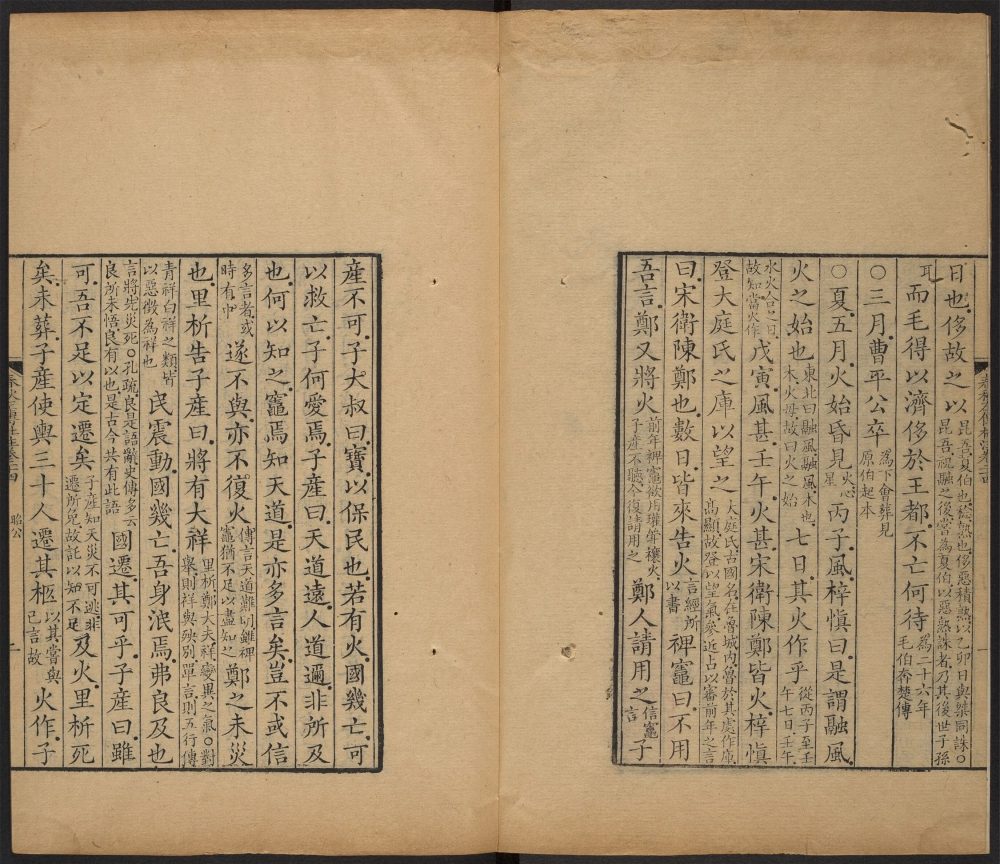 日也侈故之以昆吾夏伯也稔熟也侈惡積熟以乙卯日與桀同誅〇昆吾祝融之後嘗為夏伯以惡熟誅者乃其後世子孫
耳而毛得以濟侈於王都不亡何待為二十六年毛伯奔楚傳
〇三月曹平公卒為下會葬見原伯起本
〇夏五月火始昏見火心星丙子風梓慎曰是謂融風
火之始也東北曰融風融風木也木火母故曰火之始七日其火作乎從丙子至壬午七日壬午
水火合之日故知當火作戊寅風甚壬午火甚宋衛陳鄭皆火梓慎
登大庭氏之庫以望之大庭氏古國名在魯城內魯於其處作庫高顯故登以望氣參近占以審前年之言
曰宋衛陳鄭也數日皆來告火言經所以書裨竈曰不用
吾言鄭又將火前年裨竈欲用瓘斝禳火子產不聽今復請用之鄭人請用之信竈言子
產不可子大叔曰寶以保民也若有火國幾亡可
以救亡子何愛焉子產曰天道遠人道邇非所及
也何以知之竈焉知天道是亦多言矣豈不或信
多言者或時有中遂不與亦不復火傳言天道難明雖裨竈猶不足以盡知之鄭之未災
也里析告子產曰將有大祥里析鄭大夫祥變異之氣〇對舉則祥與殃別單言則五行傳
青祥白祥之類皆以惡徵為祥也民震動國幾亡吾身泯焉弗良及也
言將先災死〇孔疏良是語辭史傳多云良所未悟良有以也是古今共有此語國遷其可乎子產曰雖
可吾不足以定遷矣子產知天災不可逃非遷所免故託以知不足及火里析死
矣未葬子產使輿三十人遷其柩以其嘗與己言故火作子
昭公
一